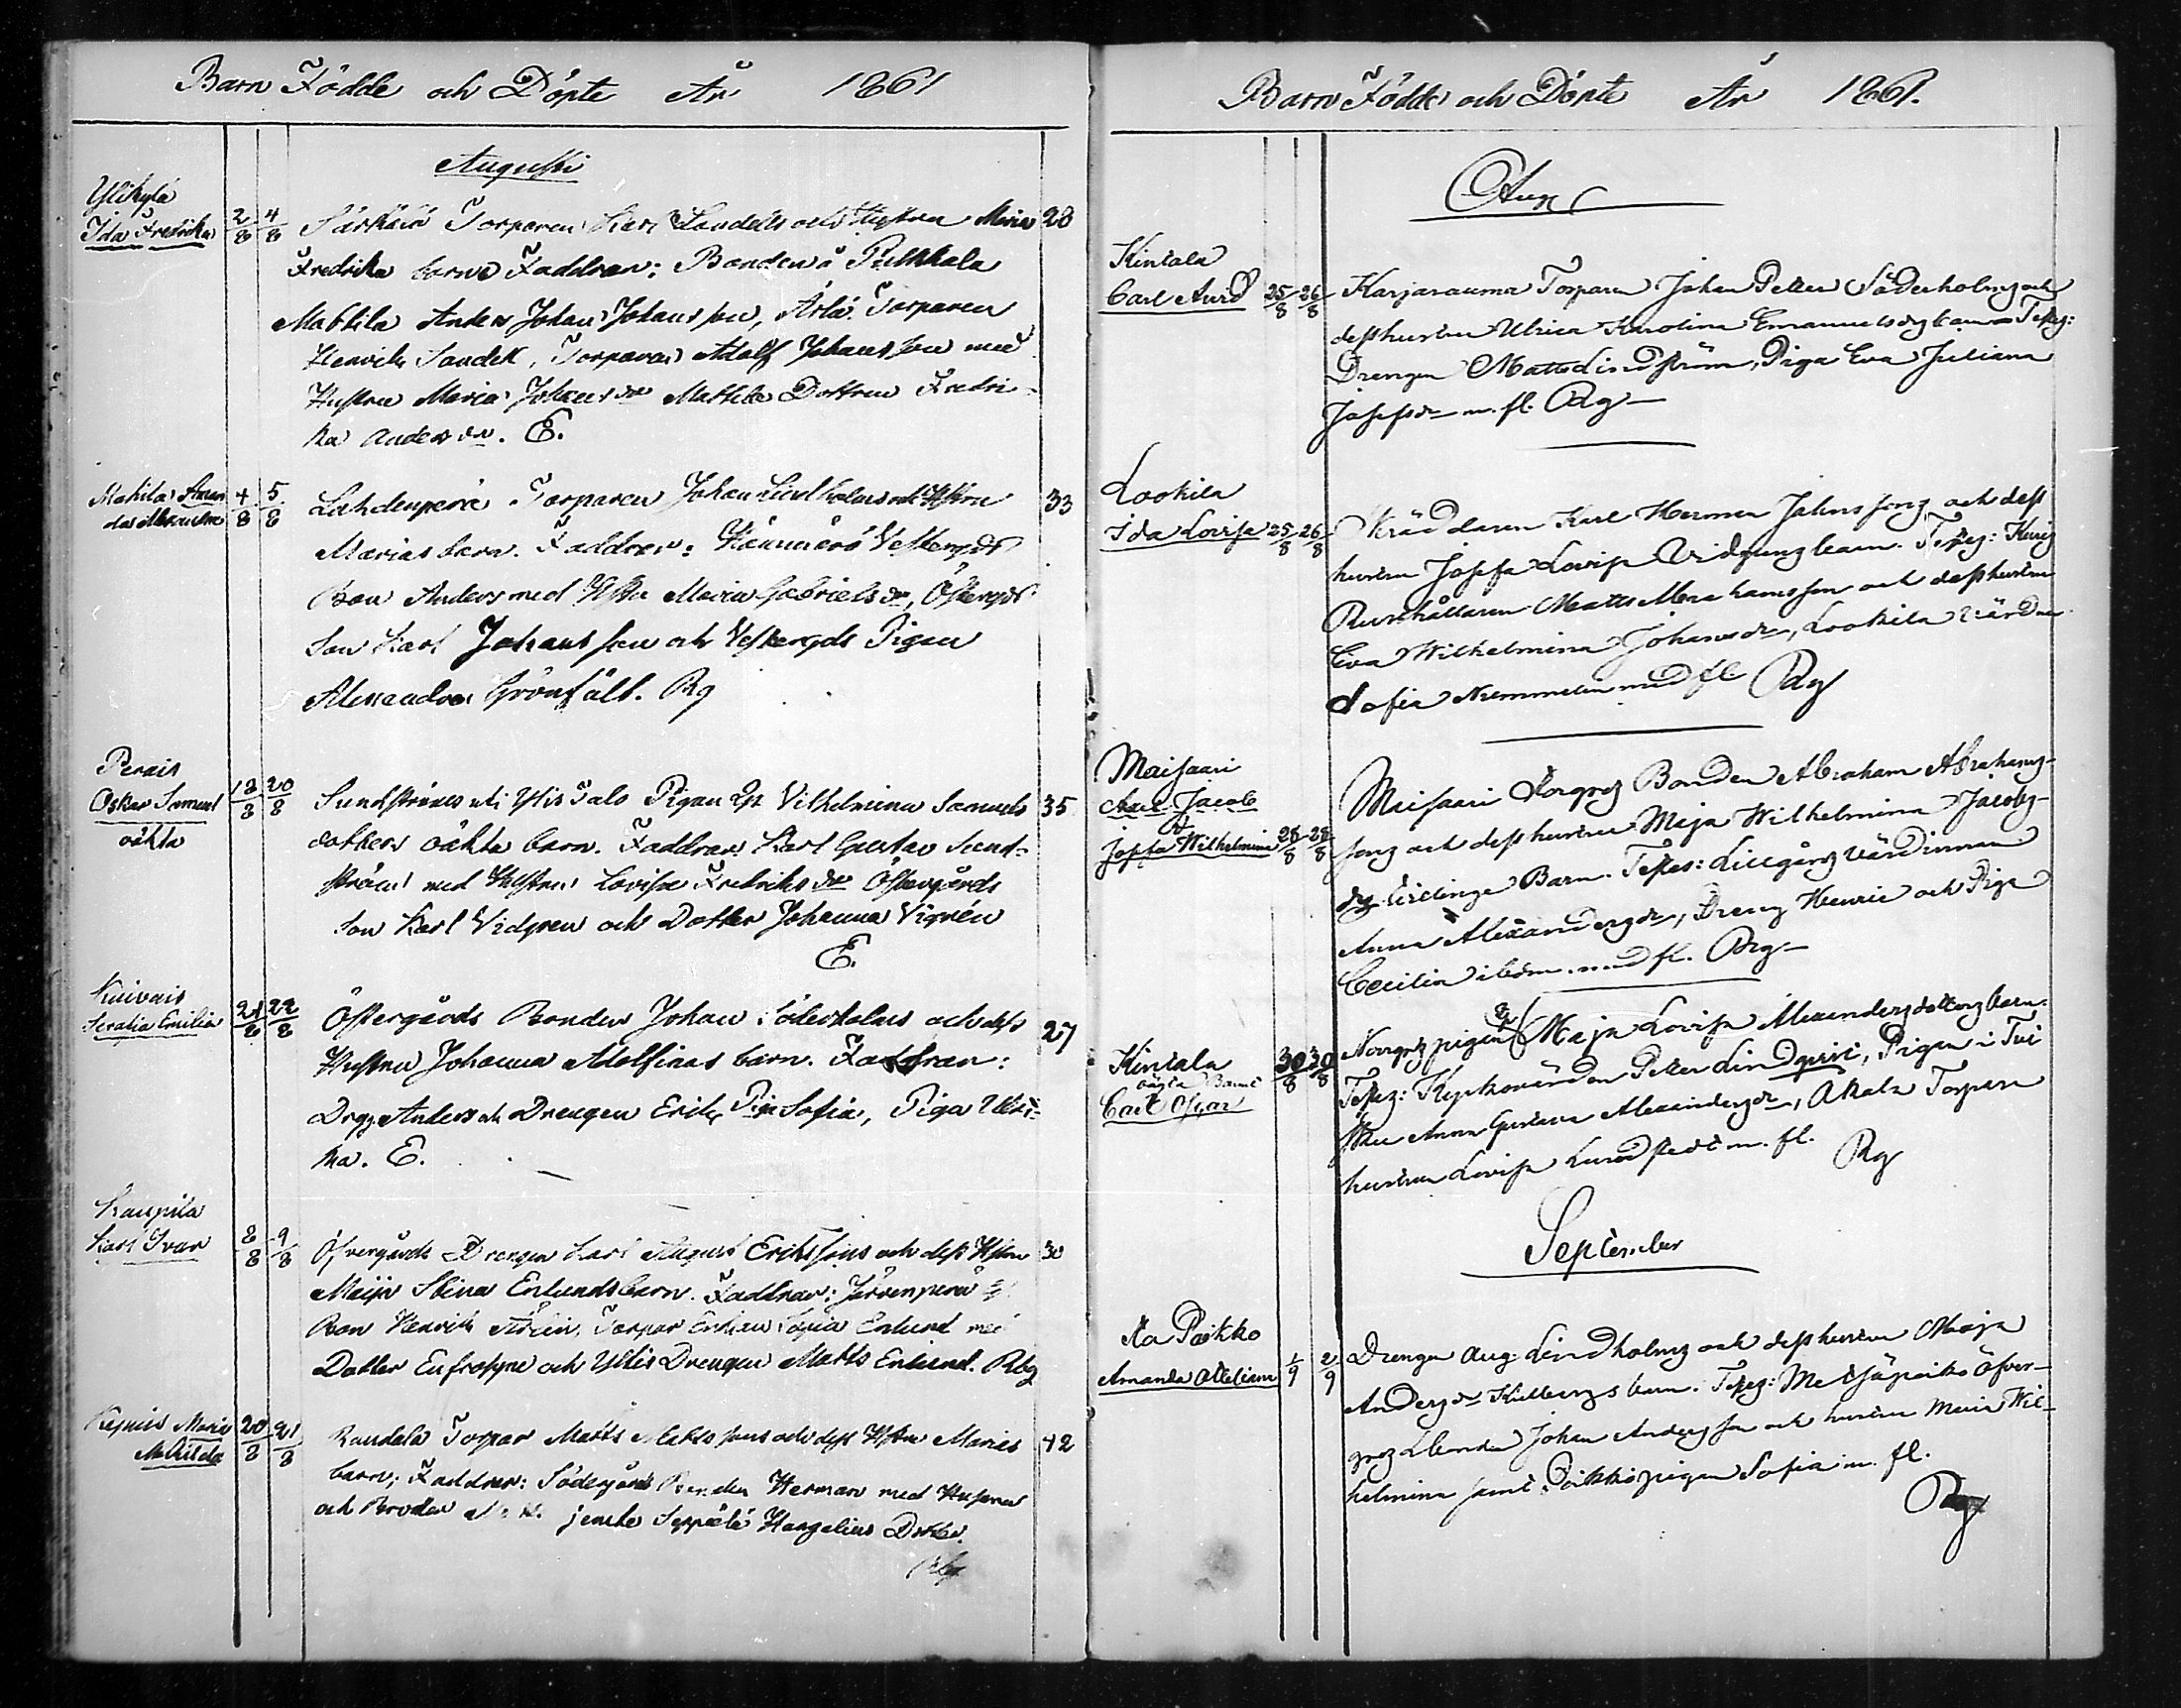 Barn Födde och Döpte År 1861
Augusti
Ylikylä
Ida Fredrika 2/8 4/8 Särkkää Torparen Karl Sandells och Hustrun Maria 28
Fredrika barn Faddrar: Bonden å Pukkala
Mattila Anders Johan Johansson, Torparen
Henrik Sandell, Torparen Adolf Johansson med
Hustru Maria Johansdr Mattila Dottren Fredri-
ka Andersdr. E.
Mahila Aman
da Alexandra 4/8 5/8 Lahdenperä Torparen Johan Lindholms och Hstru 33
Marias barn. Faddrar: Vestergds
Bon Anders med Hstru Maria Gabrielsdr, Östergds
Son Karl Johansson och Vestergds Pigan
Alexandra Grönfält. Rg
Perais
Oskar Samuel
oäkta 18/8 20/8 Sundströms uti Ylis Talo Pigan Vilhelmina Samuels 35
dotters oäkta barn. Faddrar: Karl Gustav Sund-
ström med Hustrun Lovisa Fredriksdr Östergårds
Son Karl Vidgren och Dotter Johanna Vigrén
E.
Kuivais
Serafia Emilia 21/8 22/8 Östergårds Bonden Johan Söderholms och dess 27
Hustru Johanna Adolfinas barn. Faddrar:
Drgg. Anders och Drengen Erik, Pig Sofia, Piga Ulri-
ka. E.
Kaupila
Karl Ivar 8/8 9/8 Öfvergårds Drengen Karl August Erikssons och dess Hstru 30
Maija Stina Enlunds barn. Faddrar: Järvenperä
Bon Henrik Torpar Enkan Sofia Enlund med
Dotter Eufrosyne och Ylis Drengen Matts Enlund. Rbg
Kepuis Maria
Mathilda 20/8 21/8 Randala Torpar Matts Mattssons och dess Hstru Marias 42
barn; Faddrar: Södergårds Bonden Herman med Hustru
och Broder jemte Seppälä Hangelius Dotter.
Rbg
Barn Födde och Döpte År 1861.
Aug
Kintala
Carl Aurd 25/8 26/8 Karjarauma Torparen Johan Petter Söderholms och
dess hustru Ulrica Karolina Emanuelsdrs barn Testes:
Drengen Matts Lindström, Piga Eva Juliana
Josefsdr m. fl. Rg
Lookila
Ida Lovisa 25/8 26/8 Skräddaren Karl Herman Johnssons och dess
hustru Josefa Lovisa Vidgrens barn. Testes:
Rusthållaren Matts Abrahamsson och dess hustru
Eva Wilhelmina Johansdr, Lookila värdin
Sofia Nummelin med fl. Rg
Maisaari
Axel Jacob
&
Josefa Wilhelmina 28/8 28/8 Maisaari Norrgrds Bonden Abraham Abrahams-
sons och dess hustru Maja Wilhelmina Jacobs-
drs tvillinge Barn. Testes: Lillgårds värdinnan
Anna Alexandersdr, Dreng Henric och Piga
Cecilia ibdm. med fl. Rg
Kintala
oägta Barnet
Carl Oscar 30/8 30/8 Norrgrds pigan Maja Lovisa Alexandersdotters barn.
Testes: Kyrkovärden Petter Lindqvist, Pigan i Tui
Anna Gustava Alexandersdr, Akala Torpare
hustrun Lovisa Lundstedt m. fl. Rg
September
Ala Poikko
Amanda Otteliana 1/9 2/9 Drengen Aug. Lindholms och dess hustru Maja
Andersdr Kullbergs barn. Testes: Metsäpoikko Öfver-
grds Bonden Johan Andersson och hustru Maria Wil-
helmina samt Poikko pigan Sofia m. fl.
Rg